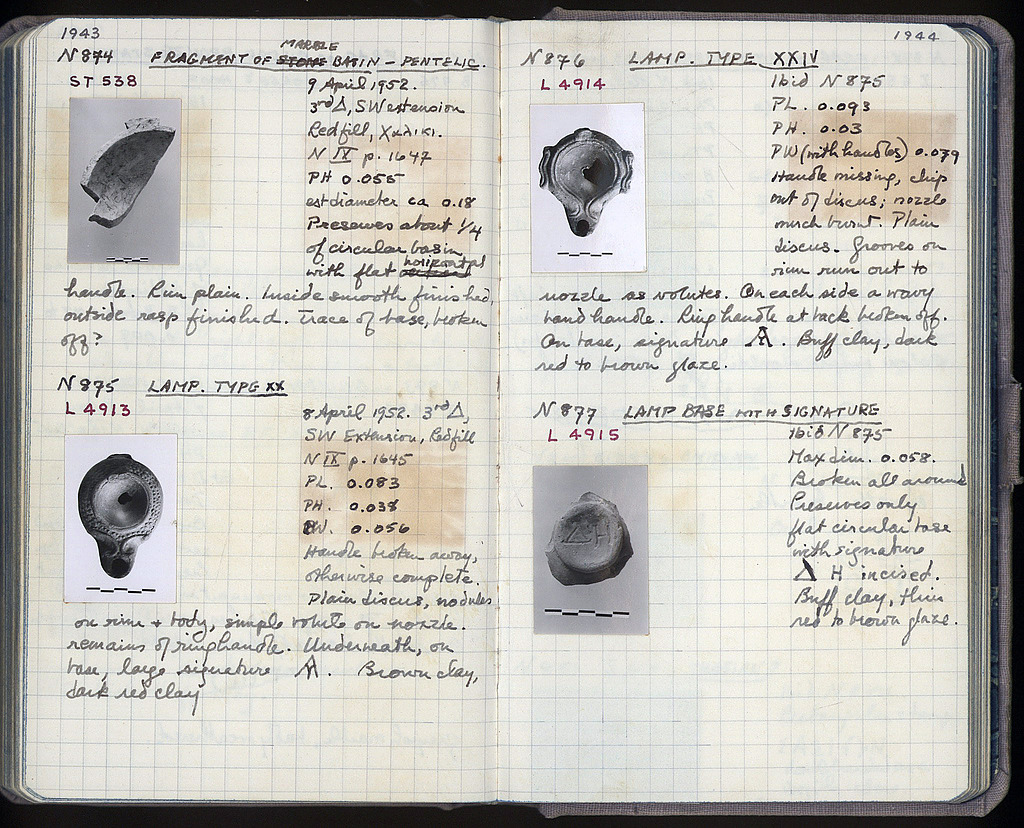 1943
N 874 FRAGMENT OF STONE MARBLE BASIN – PENTELIC.
ST 538
9 April 1952.
3rd Δ, SW extension
Red fill, Χαλικι.
N IX p. 1647
PH 0.055
est diameter ca 0.18
Preserves about 1/4
of circular basin
with flat horizontal
handle. Rim plain. Inside smooth finished,
outside rasp finished. Trace of base, broken
off?
N 875 LAMP. TYPE XX
L 4913
8 April 1952. 3rd Δ,
SW Extension, Red fill
N IX p. 1645
PL. 0.083
PH. 0.038
PW. 0.056
Handle broken away,
otherwise complete.
Plain discus, nodules
on rim + body, simple volute on nozzle.
remains of ring handle. Underneath, on
base, large signature. Brown clay,
dark red clay
1944
N 876 LAMP. TYPE XXIV
L 4914
Ibid N 875
PL. 0.093
PH. 0.03
PW (with handles) 0.079
Handle missing, chip
out of discus; nozzle
much burnt. Plain
discus. Grooves on
rim run out to
nozzle as volutes. On each side a wavy
band handle. Ring handle at back broken off.
On base, signature. Buff clay, dark
red to brown glaze.
N 877 LAMP BASE WITH SIGNATURE
L 4915
Ibid N 875
Max dim. 0.058.
Broken all around
Preserves only
flat circular base
with signature
Δ H incised.
Buff clay, thin
red to brown glaze.